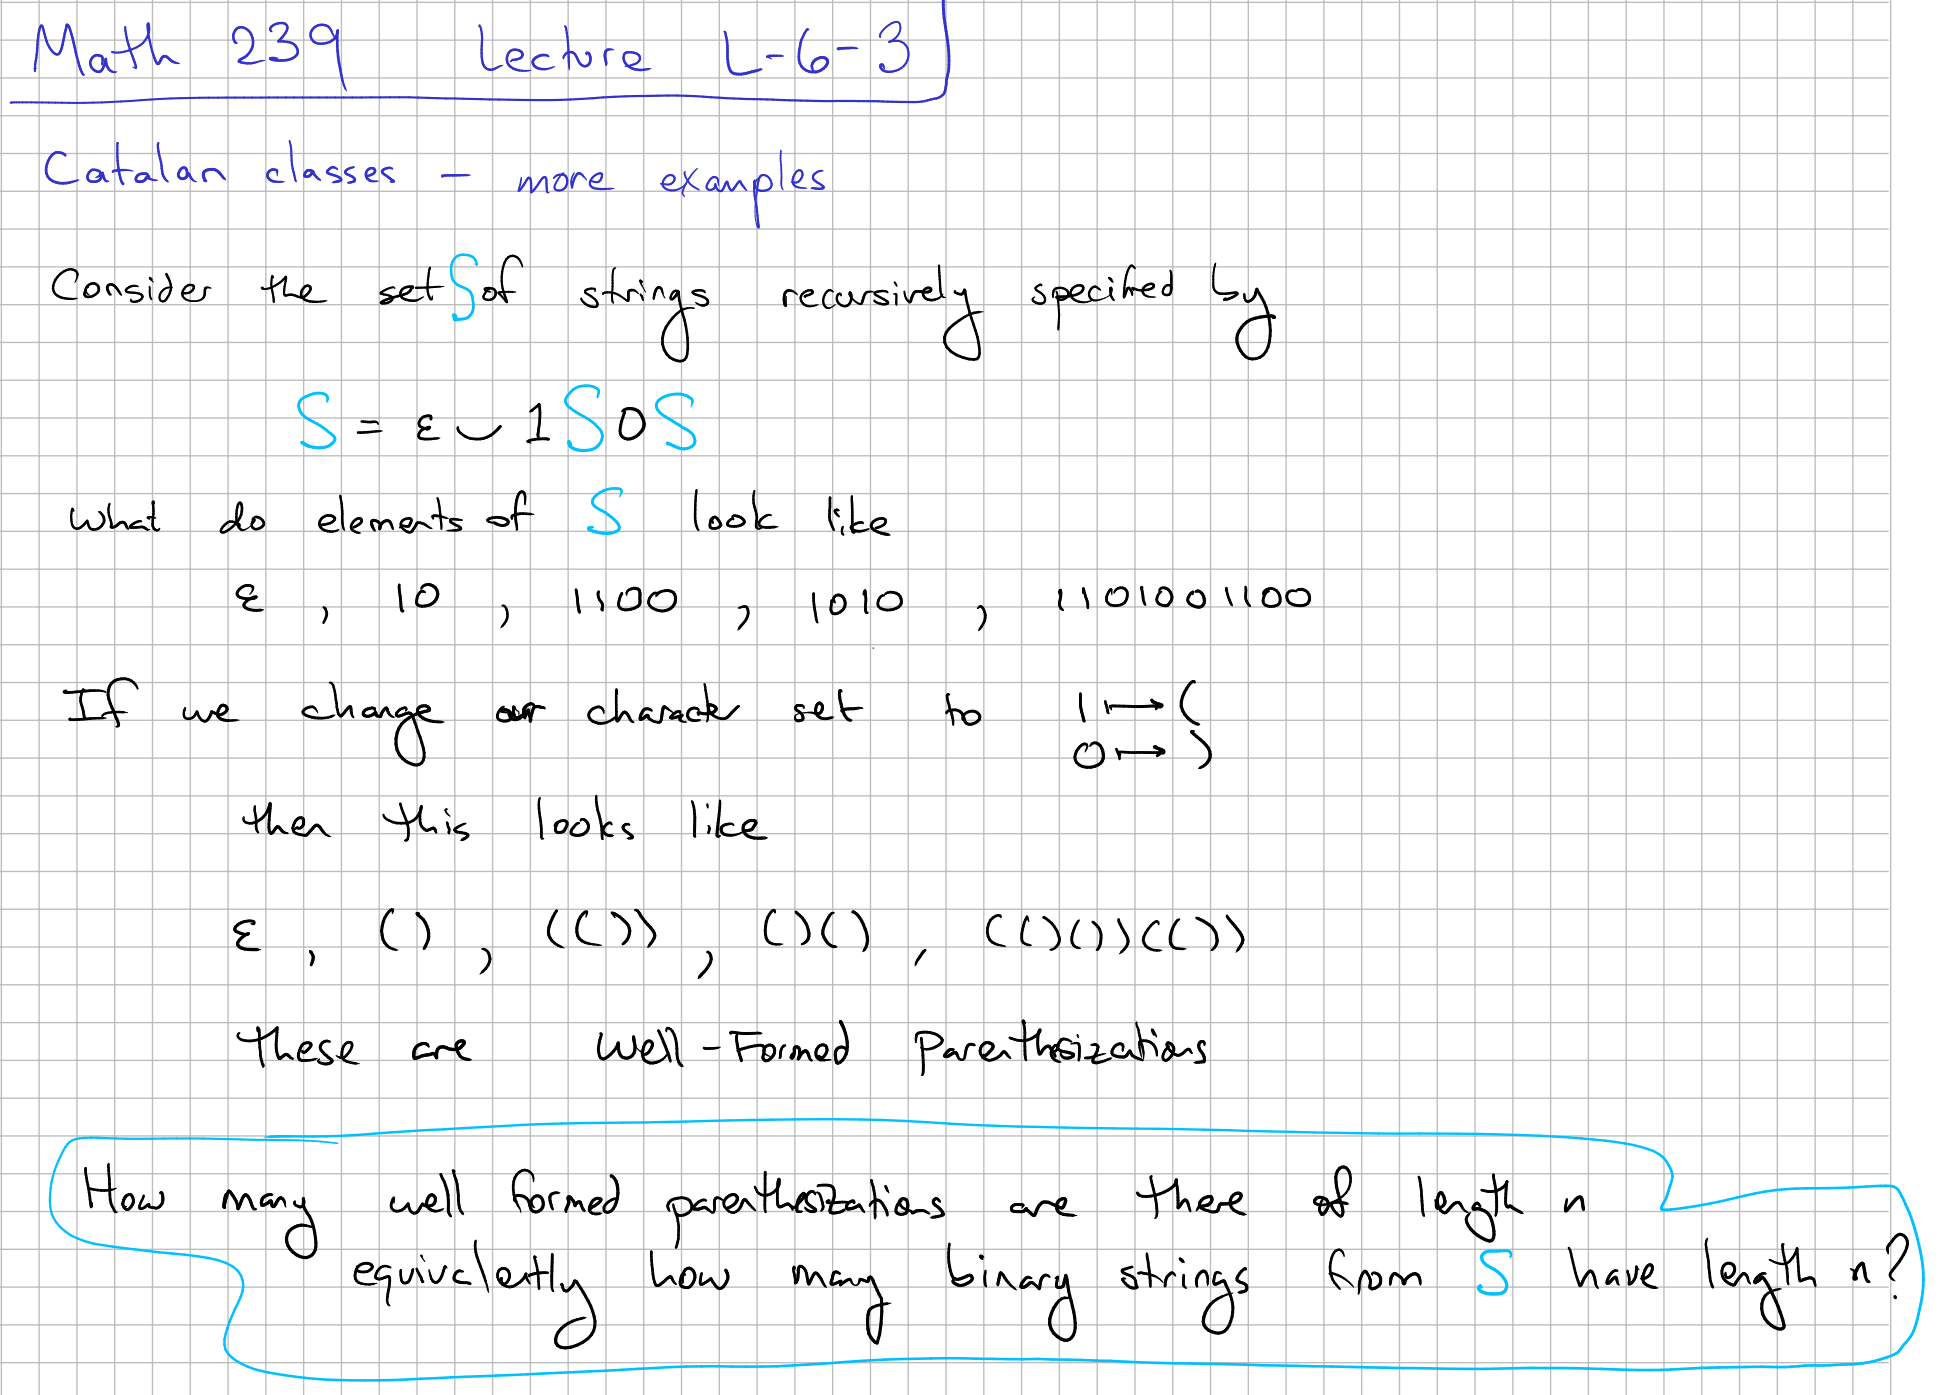 Math 239 Lecture L-6-3
Catalan classes – more examples
Consider the set S of strings recursively specified by
S = ε ∪ 1 S 0 S
What do elements of S look like
ε , 10 , 1100 , 1010 , 1101001100
If we change our character set to 1 ↦ (
0 ↦ )
then this looks like
ε , () , (()) , ()() , (()())(())
these are Well-Formed Parenthesizations
How many well formed parenthesizations are there of length n
equivalently how many binary strings from S have length n?